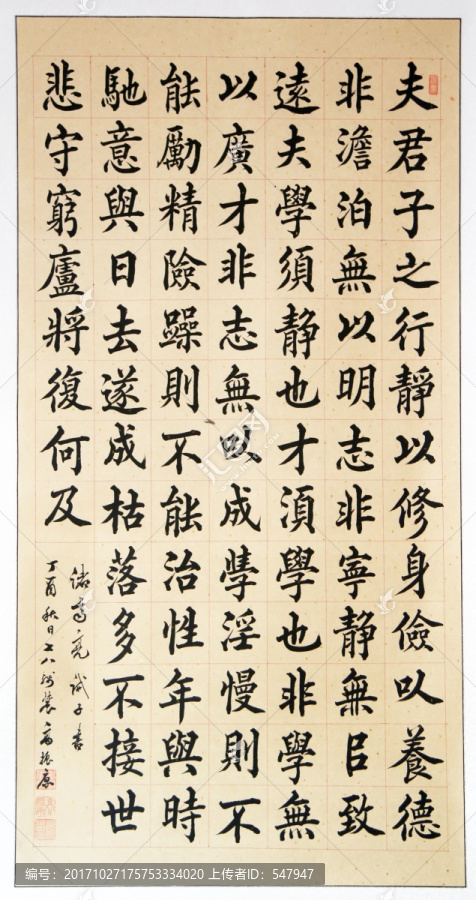 夫君子之行靜以修身儉以養德
非澹泊無以明志非寧靜無以致
遠夫學須静也才須學也非學無
以廣才非志無以成學淫慢則不
能勵精險躁則不能治性年與時
馳意與日去遂成枯落多不接世
悲守窮廬將復何及
諸葛亮誡子書
丁酉秋日
编号：20171027175753334020 上传者ID：547947